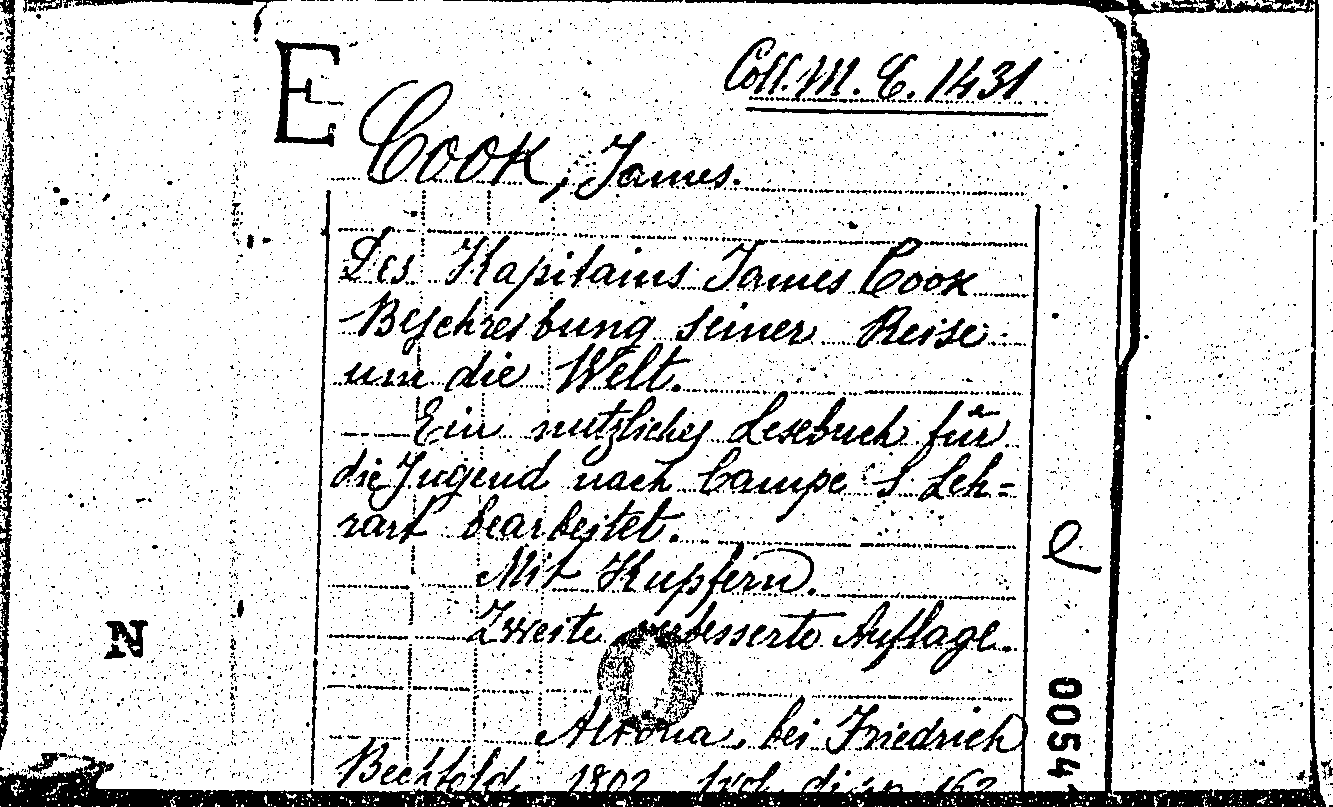 E
Coll. M. C. 1431
Cook, James.
Des Kapitains James Cook
Beschreibung seiner Reise
um die Welt.
Ein nützliches Lesebuch für
die Jugend nach Campe's Leh=
rart bearbeitet.
Mit Kupfern.
Zweite verbesserte Auflage.
Altona, bei Friedrich
Bechtold, 1802. 1 vol. di pp. 162
N
0054